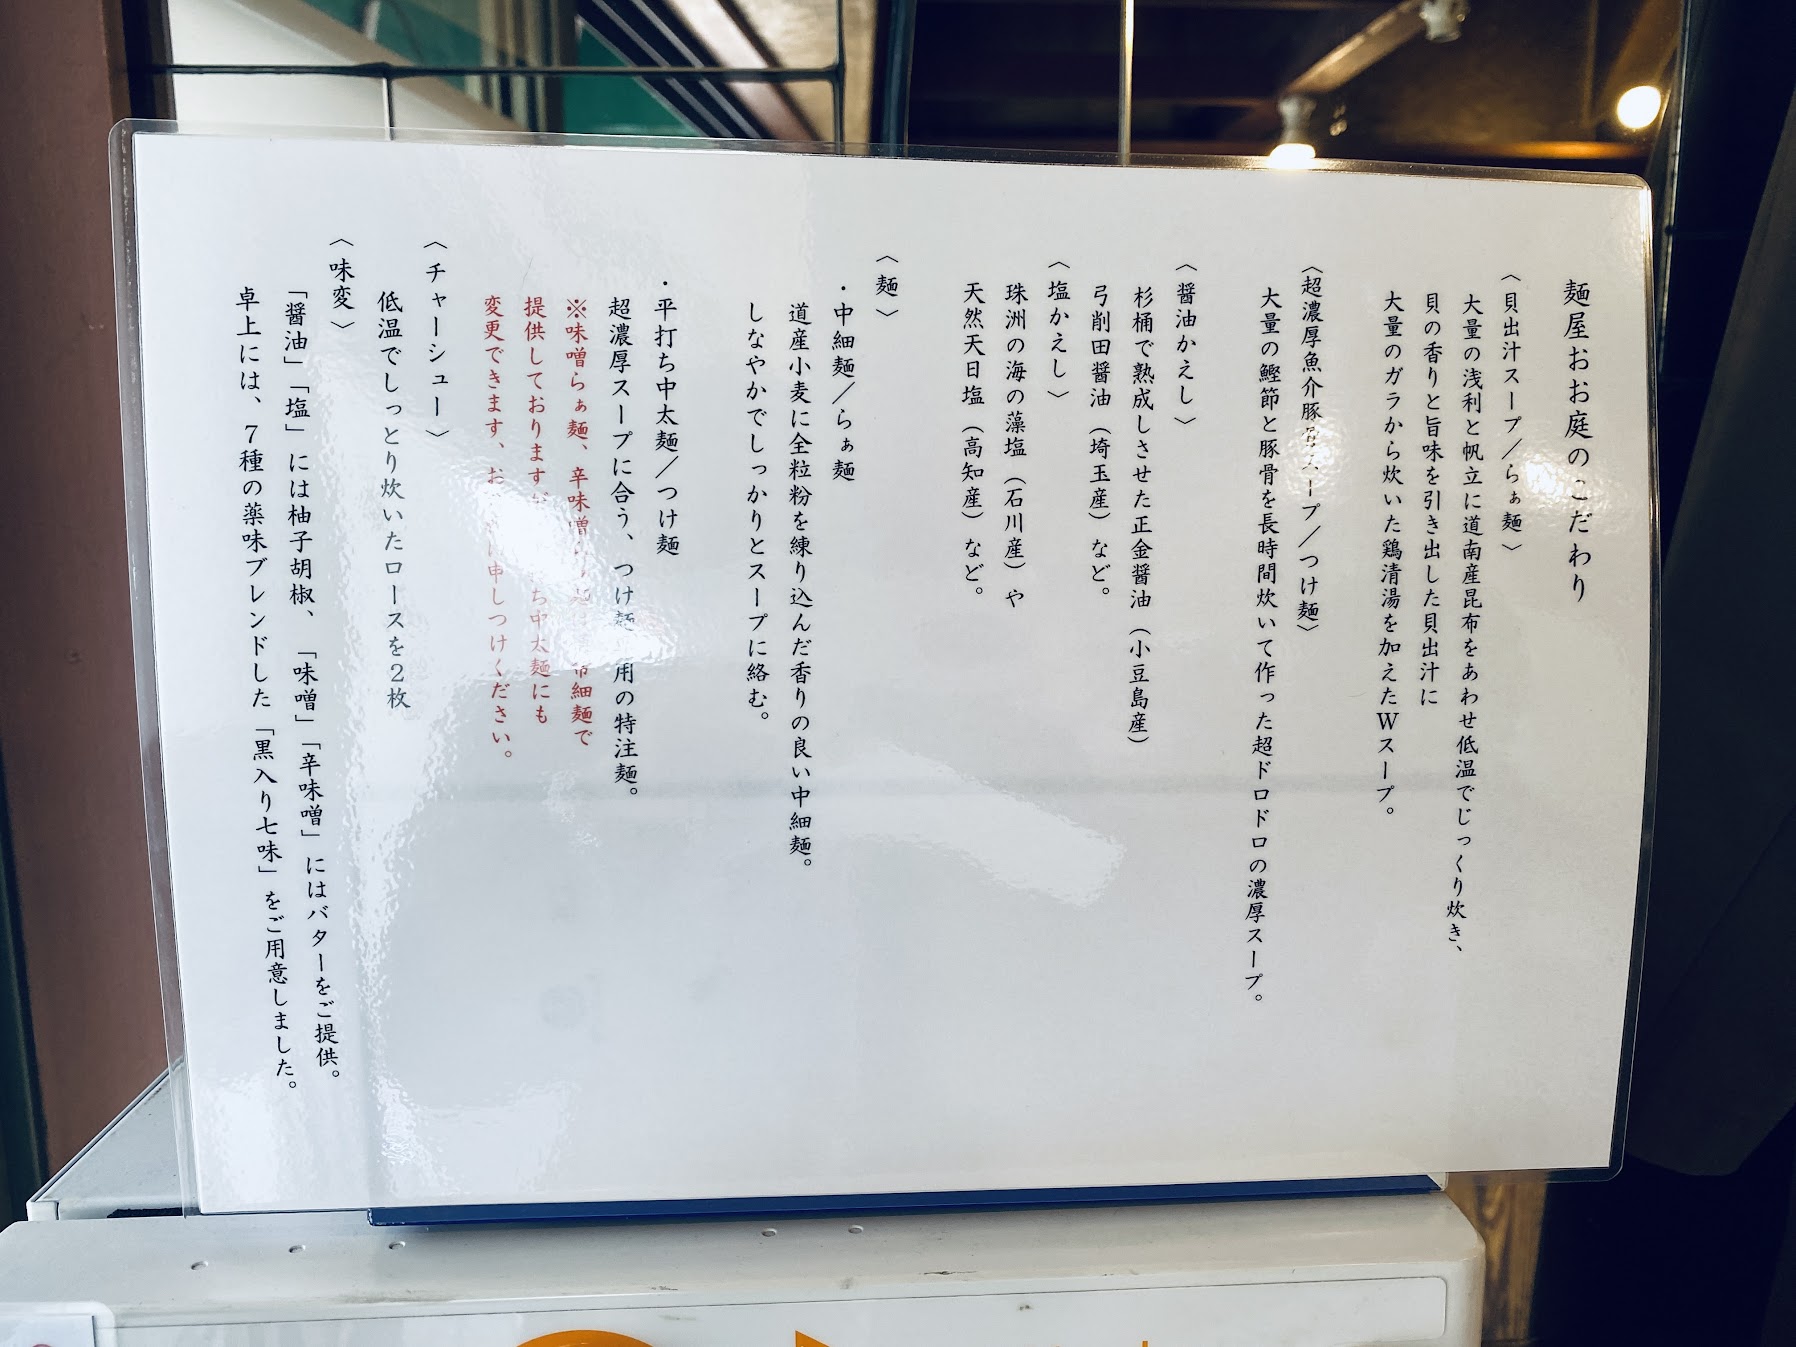 麺屋おお庭のこだわり
〈貝出汁スープ／らぁ麺〉
大量の浅利と帆立に道南産昆布をあわせ低温でじっくり炊き、
貝の香りと旨味を引き出した貝出汁に
大量のガラから炊いた鶏清湯を加えたWスープ。
〈超濃厚魚介豚骨スープ／つけ麺〉
大量の鰹節と豚骨を長時間炊いて作った超ドロドロの濃厚スープ。
〈醤油かえし〉
杉桶で熟成しさせた正金醤油（小豆島産）
弓削田醤油（埼玉産）など。
〈塩かえし〉
珠洲の海の藻塩（石川産）や
天然天日塩（高知産）など。
〈麺〉
・中細麺／らぁ麺
道産小麦に全粒粉を練り込んだ香りの良い中細麺。
しなやかでしっかりとスープに絡む。
・平打ち中太麺／つけ麺
超濃厚スープに合う、つけ麺用の特注麺。
※味噌らぁ麺、辛味噌ら細麺で
提供しておりますがち中太麺にも
変更できます、お申しつけください。
〈チャーシュー〉
低温でしっとり炊いたロースを2枚
〈味変〉
「醤油」「塩」には柚子胡椒、「味噌」「辛味噌」にはバターをご提供。
卓上には、7種の薬味ブレンドした「黒入り七味」をご用意しました。